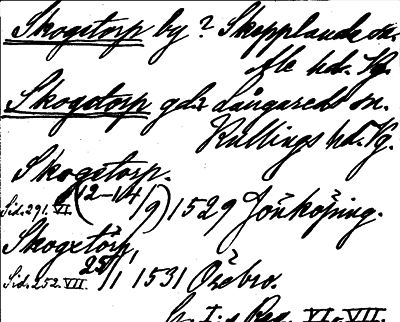 Skogstorp by? Skepplanda sn.
Ale hd. Vg.
Skogstorp gd. Långareds sn.
Kullings hd. Vg.
Skogstorp.
Sid. 291. VI. (12-14/9) 1529 Jönköping.
Skogstorp,
Sid. 252. VII. 25/1 1531 Örebro.
G. I:s Reg. VI-VII.